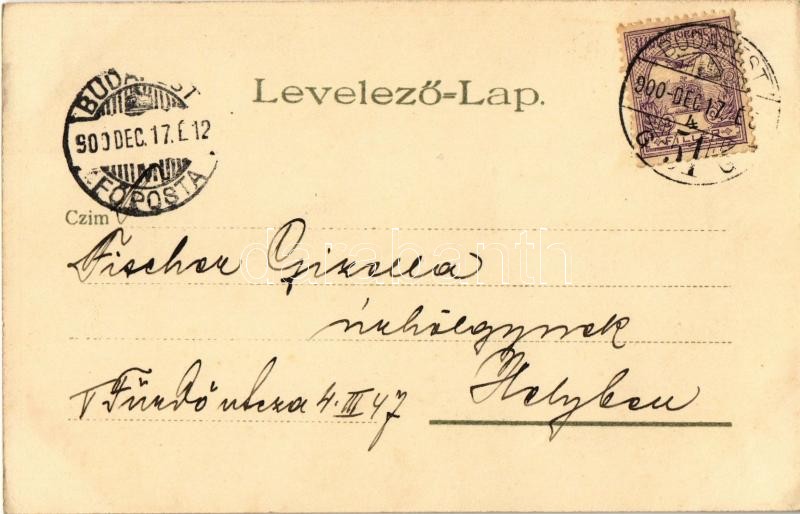 Levelező=Lap.
BUDAPEST
900 DEC. 17. É. 12
FŐPOSTA
BUDAPEST
900-DEC. 17. É
4
Czim
Fischer Gizella
úrhölgynek
V Fürdő utcza 4. III 47
Helyben
darabanth